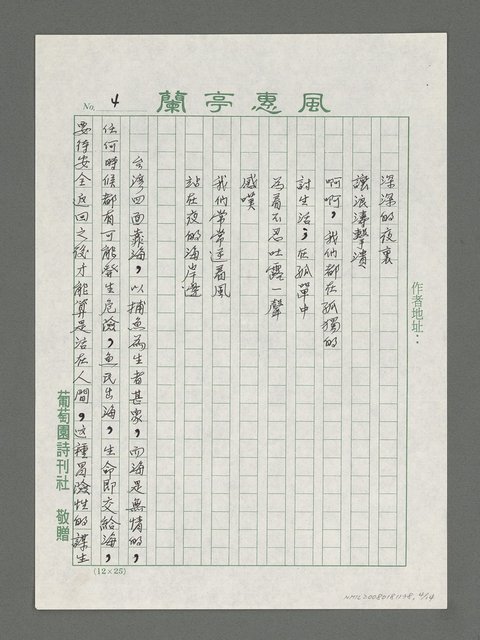 風惠亭蘭
No. 4
作者地址：
深深的夜裏
讓浪濤擊潰
啊啊，我們都在孤獨的
討生活；在孤單中
為着不忍吐露一聲
感嘆
我們常常逆着風
站在夜的海岸邊
台灣四面靠海，以捕魚為生者甚眾，而海是無情的，
任何時候都有可能發生危險，魚民出海，生命即交給海，
要待安全返回之後才能算是活在人間，这種冒險性的謀生
葡萄園詩刊社 敬贈
(12×25)
NMTL20080181198, 4/14